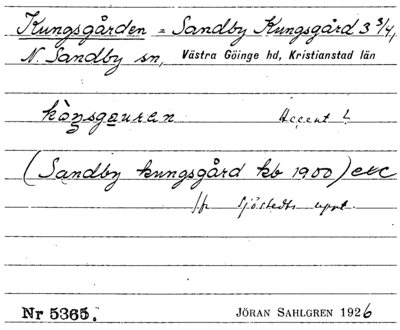 Kungsgården = Sandby Kungsgård 3 3/4,
N. Sandby sn, Västra Göinge hd, Kristianstad län
Accent !
(Sandby kungsgård kb 1900) etc
Sjöstedts uppt.
Nr 5365. JÖRAN SAHLGREN 1926